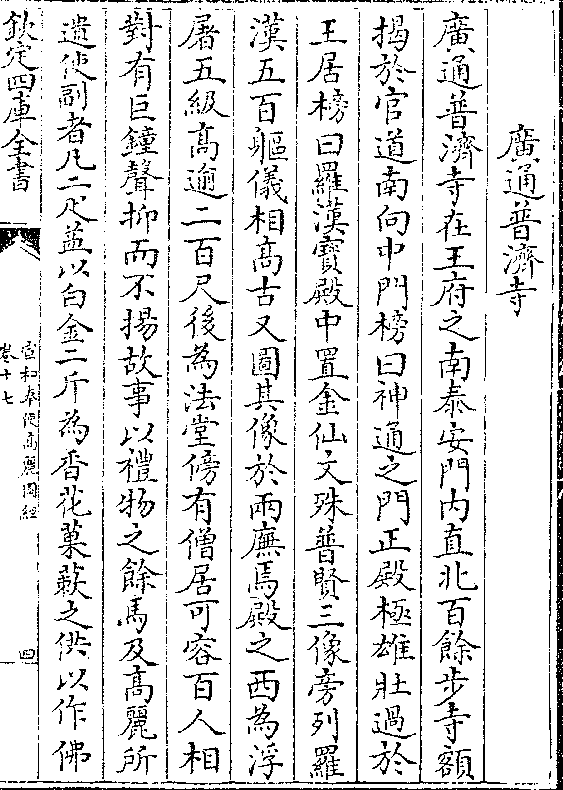 廣通普濟寺
廣通普濟寺在王府之南泰安門内直北百餘步寺額
揭於官道南向中門榜曰神通之門正殿極雄壯過於
王居榜曰羅漢寶殿中置金仙文殊普賢三像旁列羅
漢五百軀儀相高古又圖其像於兩廡焉殿之西為浮
屠五級高逾二百尺後為法堂傍有僧居可容百人相
對有巨鐘聲抑而不揚故事以禮物之餘馬及高麗所
遺使副者凡二疋益以白金二斤為香花菓蔌之供以作佛
欽定四庫全書
宣和奉使高麗圖經
卷十七
四